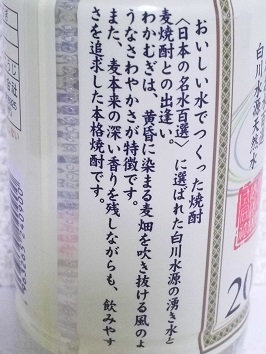 おいしい水でつくった焼酎
〈日本の名水百選〉に選ばれた白川水源の湧き水と
麦焼酎との出逢い。
わかむぎは、黄昏に染まる麦畑を吹き抜ける風のよ
うなさわやかさが特徴です。
また、麦本来の深い香りを残しながらも、飲みやす
さを追求した本格焼酎です。
白川水源天然水
20